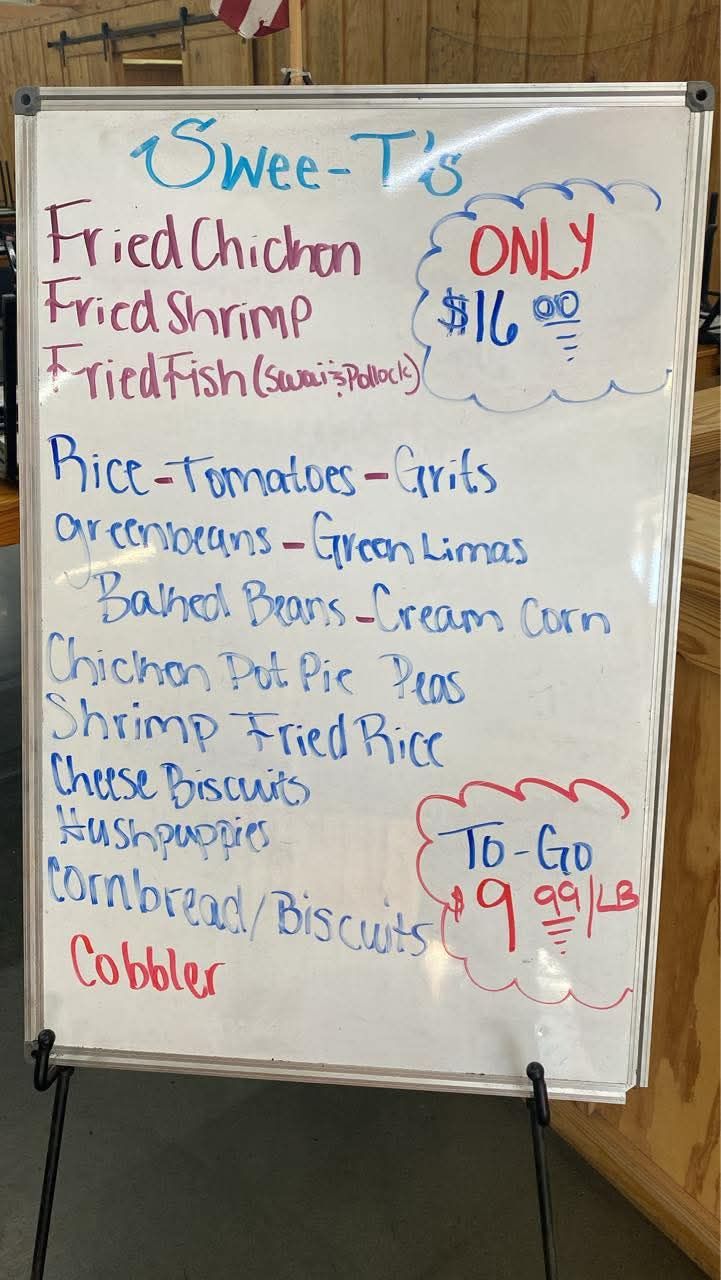 Swee-T's
Fried Chicken
Fried Shrimp
Fried Fish (Swai & Pollock)
ONLY
$16 00
Rice - Tomatoes - Grits
greenbeans - Green Limas
Baked Beans - Cream Corn
Chicken Pot Pie Peas
Shrimp Fried Rice
Cheese Biscuits
Hushpuppies
Cornbread/Biscuits
Cobbler
To-Go
$9 99/LB